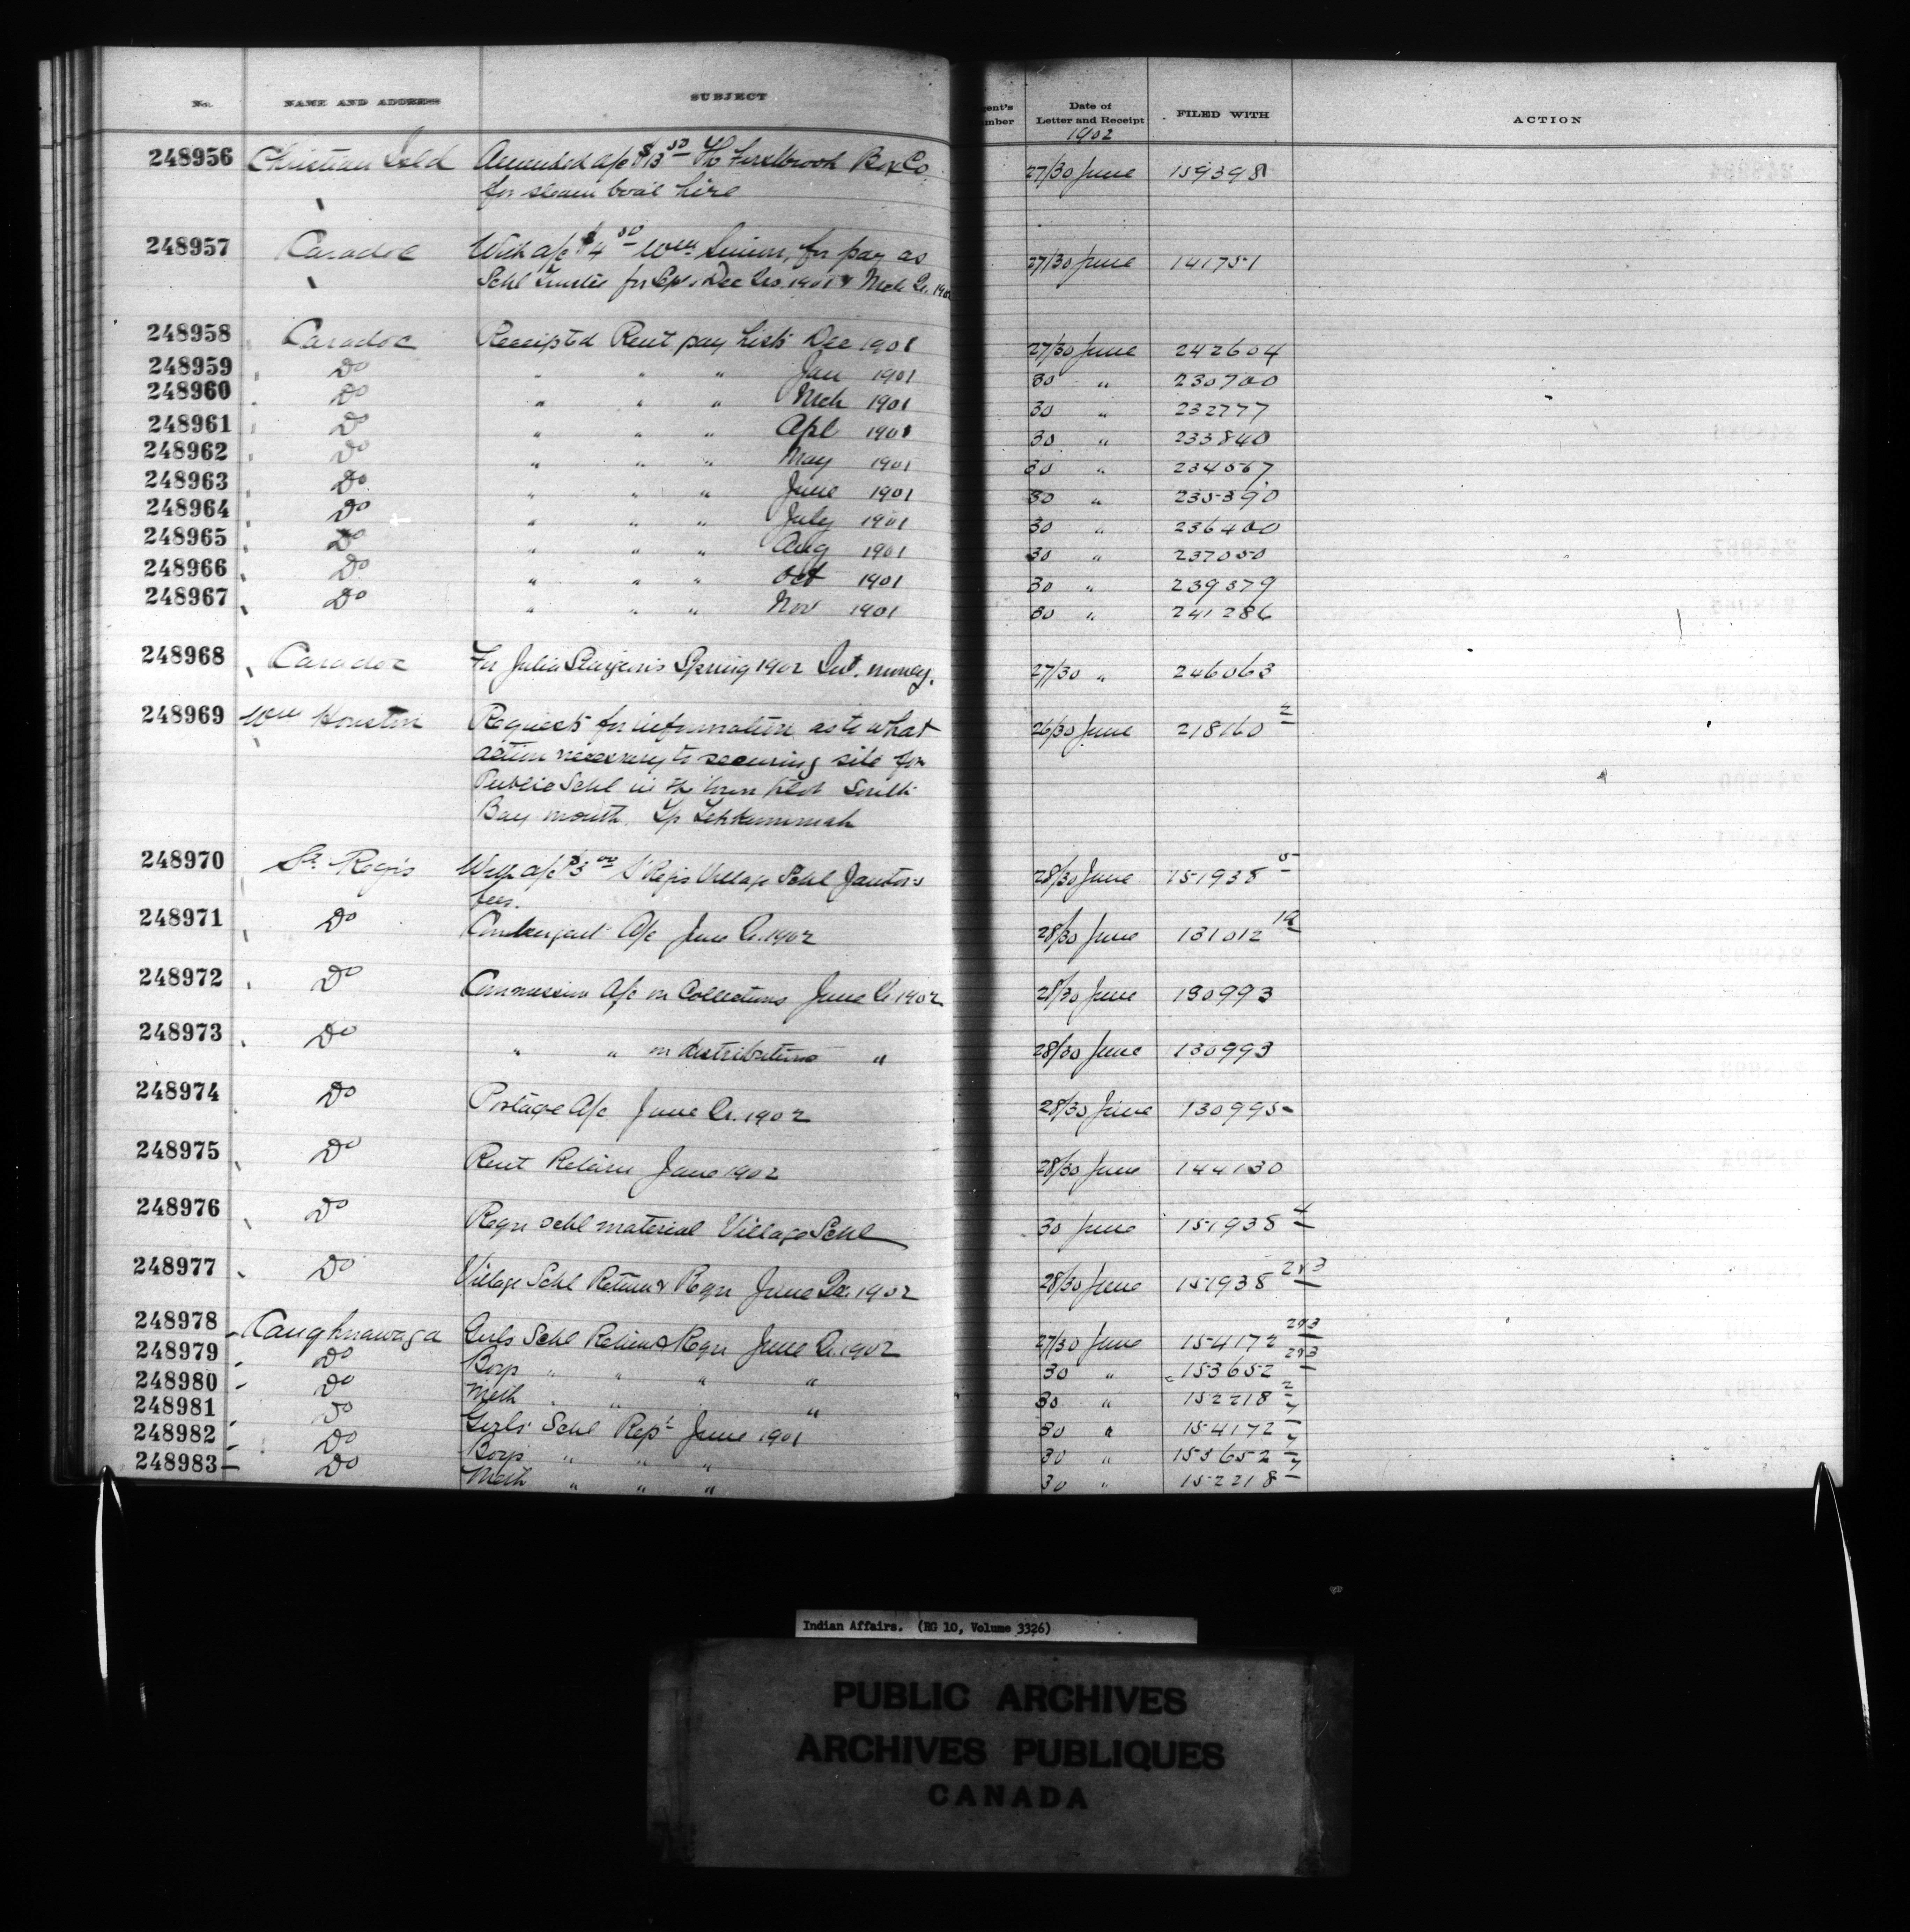 No. NAME AND ADDRESS SUBJECT gent's umber Date of Letter and Receipt FILED WITH ACTION
1902
248956 Christian Isld Amended a/c $13 50 The Firstbrook Box Co 27/30 June 159398
for steam boat hire
248957 Caradoc With a/c $4 50 Wm for pay as 27/30 June 141751
Schl Trustee for Sep. Dec Qrs. 1901 & Mch Qr. 190
248958 Caradoc Receipted Rent pay Lists Dec 1901 27/30 June 242604
248959 Do " " " Jan 1901 30 " 230700
248960 Do " " " Mch 1901 30 " 232777
248961 Do " " " Apl 1901 30 " 233840
248962 Do " " " May 1901 30 " 234567
248963 Do " " " June 1901 30 " 235390
248964 Do " " " July 1901 30 " 236400
248965 Do " " " Aug 1901 30 " 237050
248966 Do " " " Oct 1901 30 " 239379
248967 Do " " " Nov 1901 30 " 241286
248968 Caradoc For Julia Sturgeon's Spring 1902 Int. money. 27/30 " 246063
248969 Wm Houston Requests for information as to what 26/30 June 218160 2
action necessary to securing site for
Public Schl in the town plot South
Bay mouth. Tp Tehkummah
248970 St. Regis With a/c $3 00 St Regis Village Schl Janitor's 28/30 June 151938 5
fees.
248971 Do Contingent a/c June Qr. 1902 28/30 June 131012 1a
248972 Do Commission a/c on Collections June Qr 1902 28/30 June 130993
248973 Do " " on distributions " 28/30 June 130993
248974 Do Postage A/c June Qr. 1902 28/30 June 130995
248975 Do Rent Return June 1902 28/30 June 144130
248976 Do Reqn schl material Village Schl 30 June 151938 4
248977 Do Village Schl Return & Reqn June Qr. 1902 28/30 June 151938 2&3
248978 Caughnawaga Girls Schl Return & Reqn June Qr. 1902 27/30 June 154172 2&3
248979 Do Boys " " " " 30 " 153652 2&3
248980 Do Meth " " " 30 " 152218 2
248981 Do Girls' Schl Rept June 1901 30 " 154172
248982 Do Boys " " " 30 " 153652
248983 Do Meth " " " 30 " 152218
Indian Affairs. (RG 10, Volume 3326)
PUBLIC ARCHIVES
ARCHIVES PUBLIQUES
CANADA